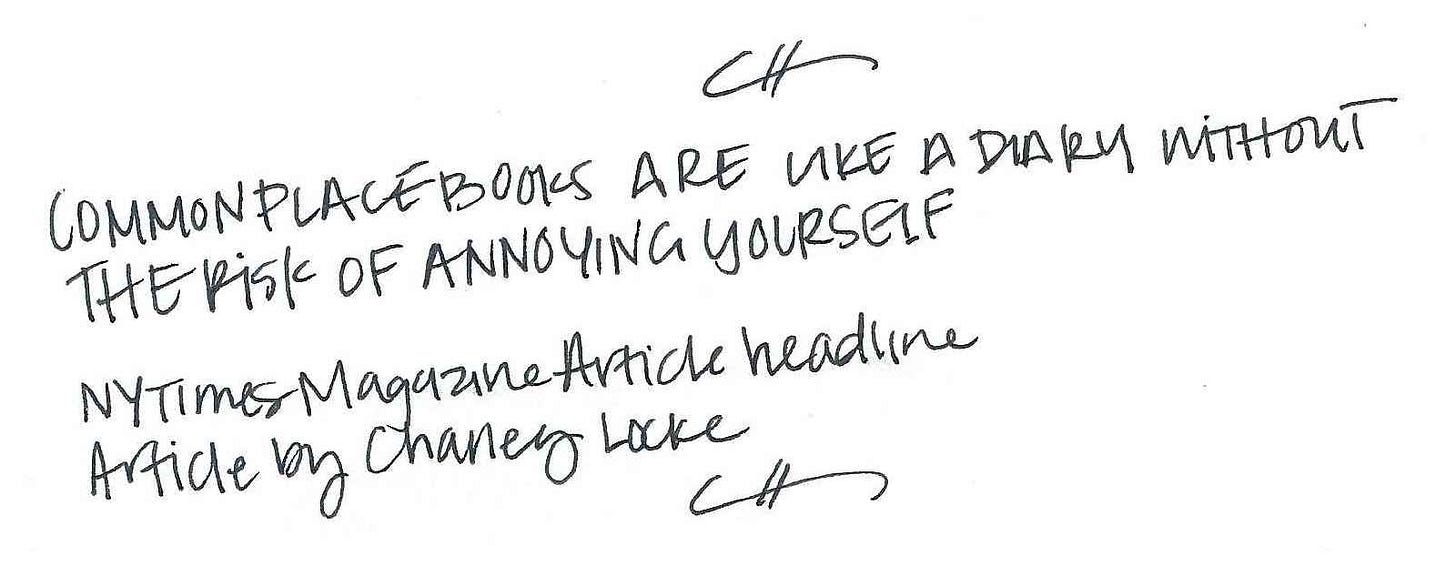 COMMONPLACEBOOKS ARE LIKE A DIARY WITHOUT
THE RISK OF ANNOYING YOURSELF
NYTimes Magazine Article headline
Article by Chaney Locke